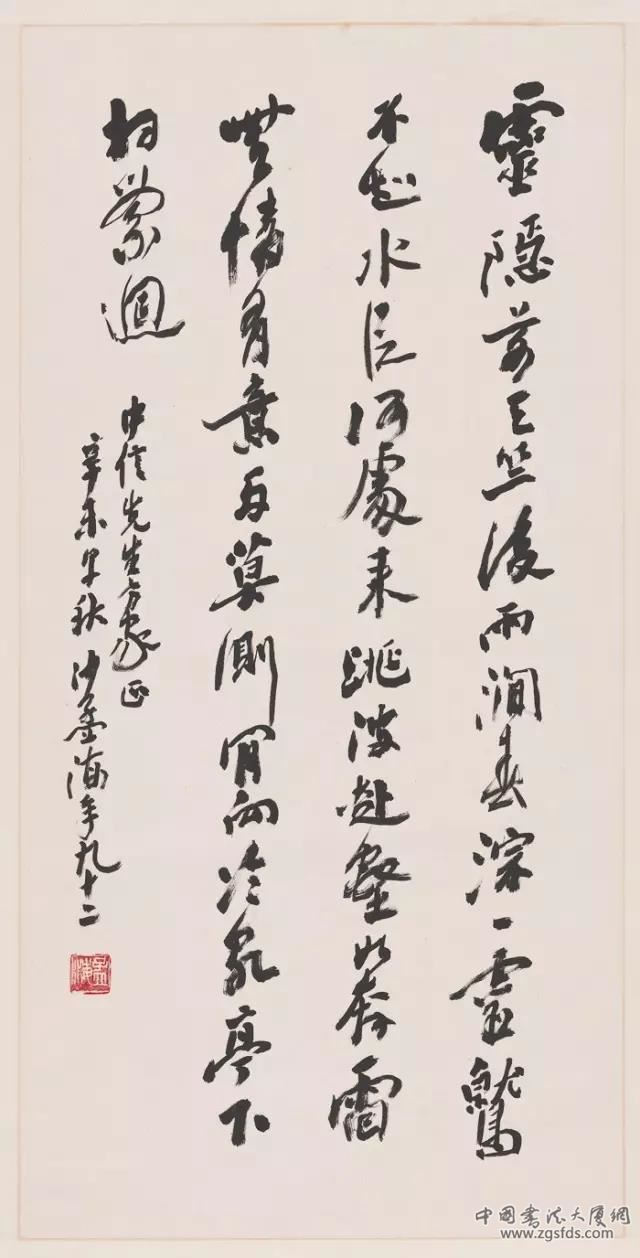 靈隱前天竺後兩澗春淙一靈鷲
不知水從何處來跳波赴壑如奔雷
無情有意兩莫測肯向冷泉亭下
相縈迴
中信先生方家正
辛未早秋 沙孟海年九十二
孟海
中國書法大廈網
www.zgsfds.com